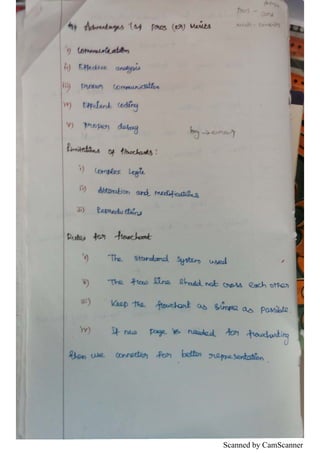 Advantages (or) pros (or) Merits
pros -
cons
i) Communication
ii) Effective analysis
iii) Proper communication
iv) Efficient coding
v) proper debug
Limitations of flowcharts:
i) Complex Logic
ii) alteration and modifications
iii) Reproductions
Rules for flowchart
i) The standard system used
ii) The flow line should not cross each other
iii) Keep the flowchart as simple as possible.
iv) If new page is needed for flowcharting
then use connector for better representation.
Scanned by CamScanner